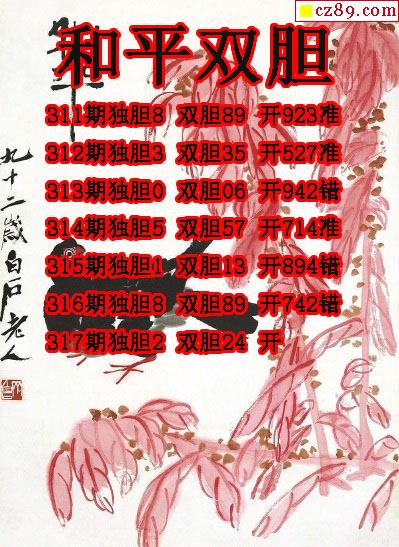 cz89.com
和平双胆
311期独胆8 双胆89 开923准
312期独胆3 双胆35 开527准
313期独胆0 双胆06 开942错
314期独胆5 双胆57 开714准
315期独胆1 双胆13 开894错
316期独胆8 双胆89 开742错
317期独胆2 双胆24 开
九十二岁白石老人